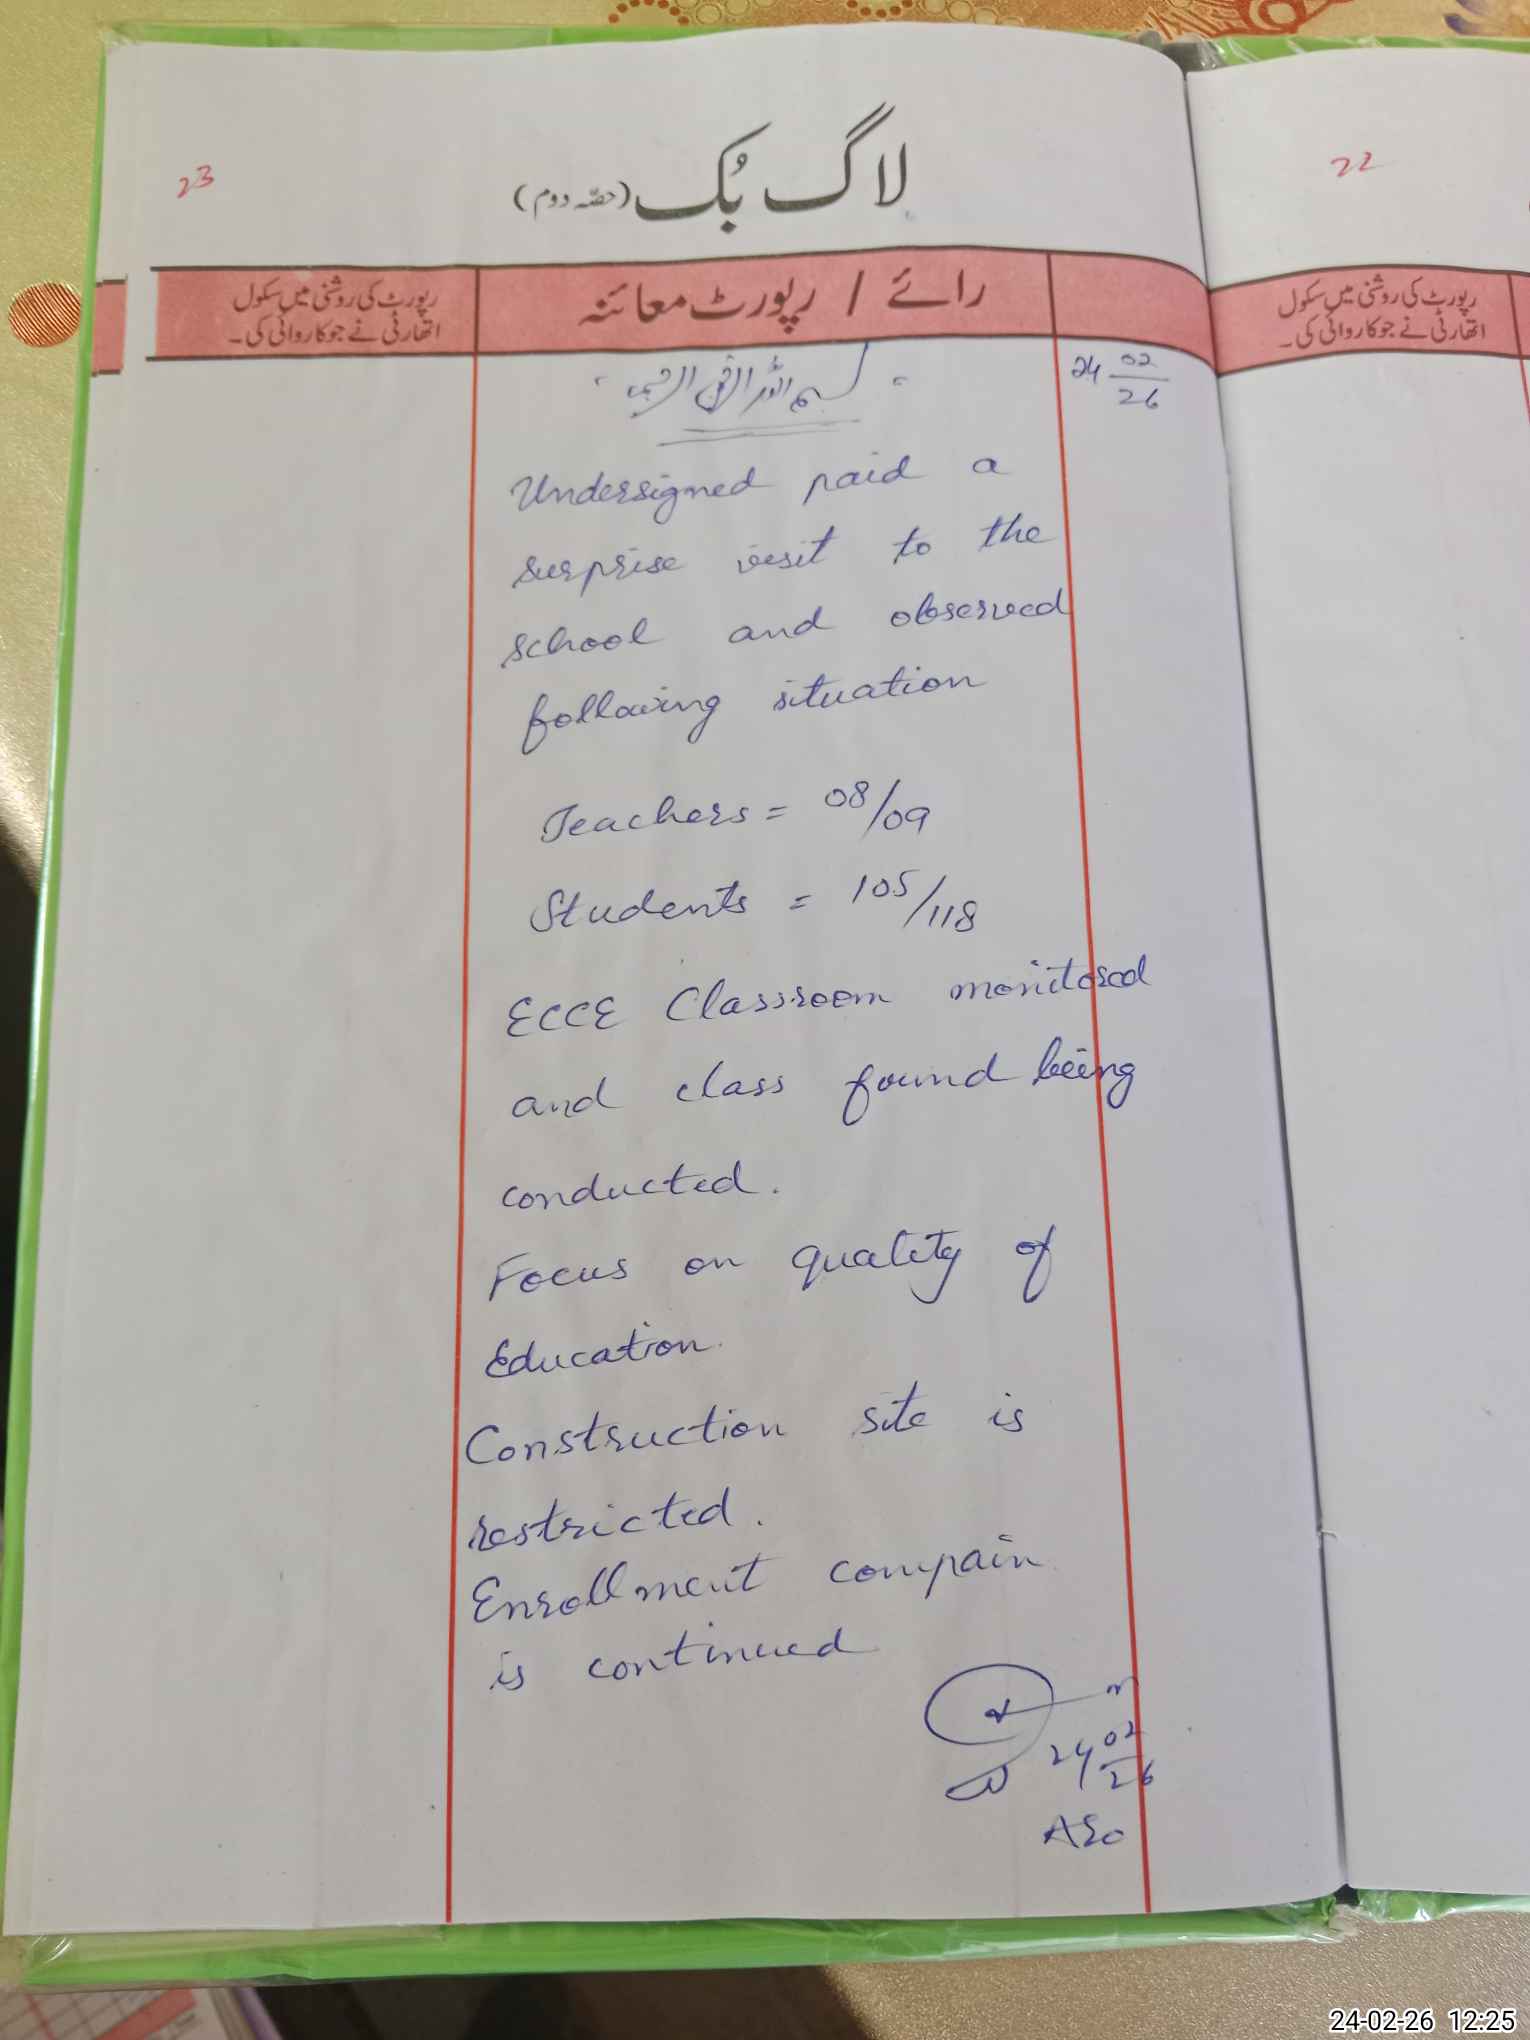 23
لاگ بُک (حصّہ دوم)
رپورٹ کی روشنی میں سکول
اتھارٹی نے جو کاروائی کی۔
رائے / رپورٹ معائنہ
بسم اللہ الرحمٰن الرحیم
24 02/26
Undersigned paid a
surprise visit to the
school and observed
following situation
Teachers = 08/09
Students = 105/118
ECCE Classroom monitored
and class found being
conducted.
Focus on quality of
Education.
Construction site is
restricted.
Enrollment compain
is continued
24 02/26
AEO
22
رپورٹ کی روشنی میں سکول
اتھارٹی نے جو کاروائی کی۔
24-02-26 12:25